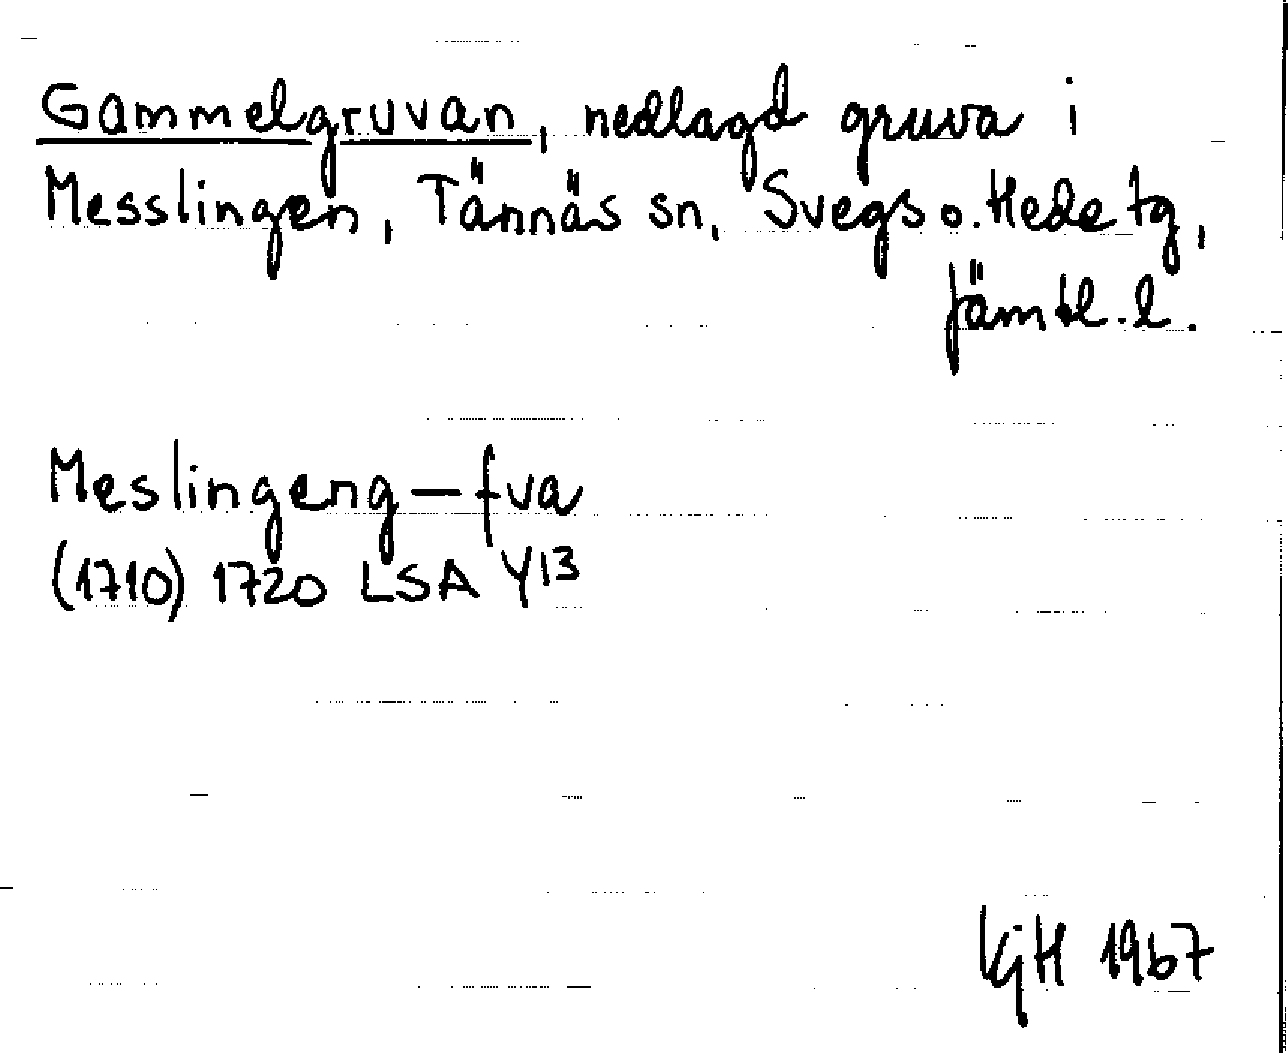 Gammelgruvan, nedlagd gruva i
Messlingen, Tännäs sn, Svegs o. Hede tg,
Jämtl. l.
Meslingeng—fva
(1710) 1720 LSA Y13
KjH 1967